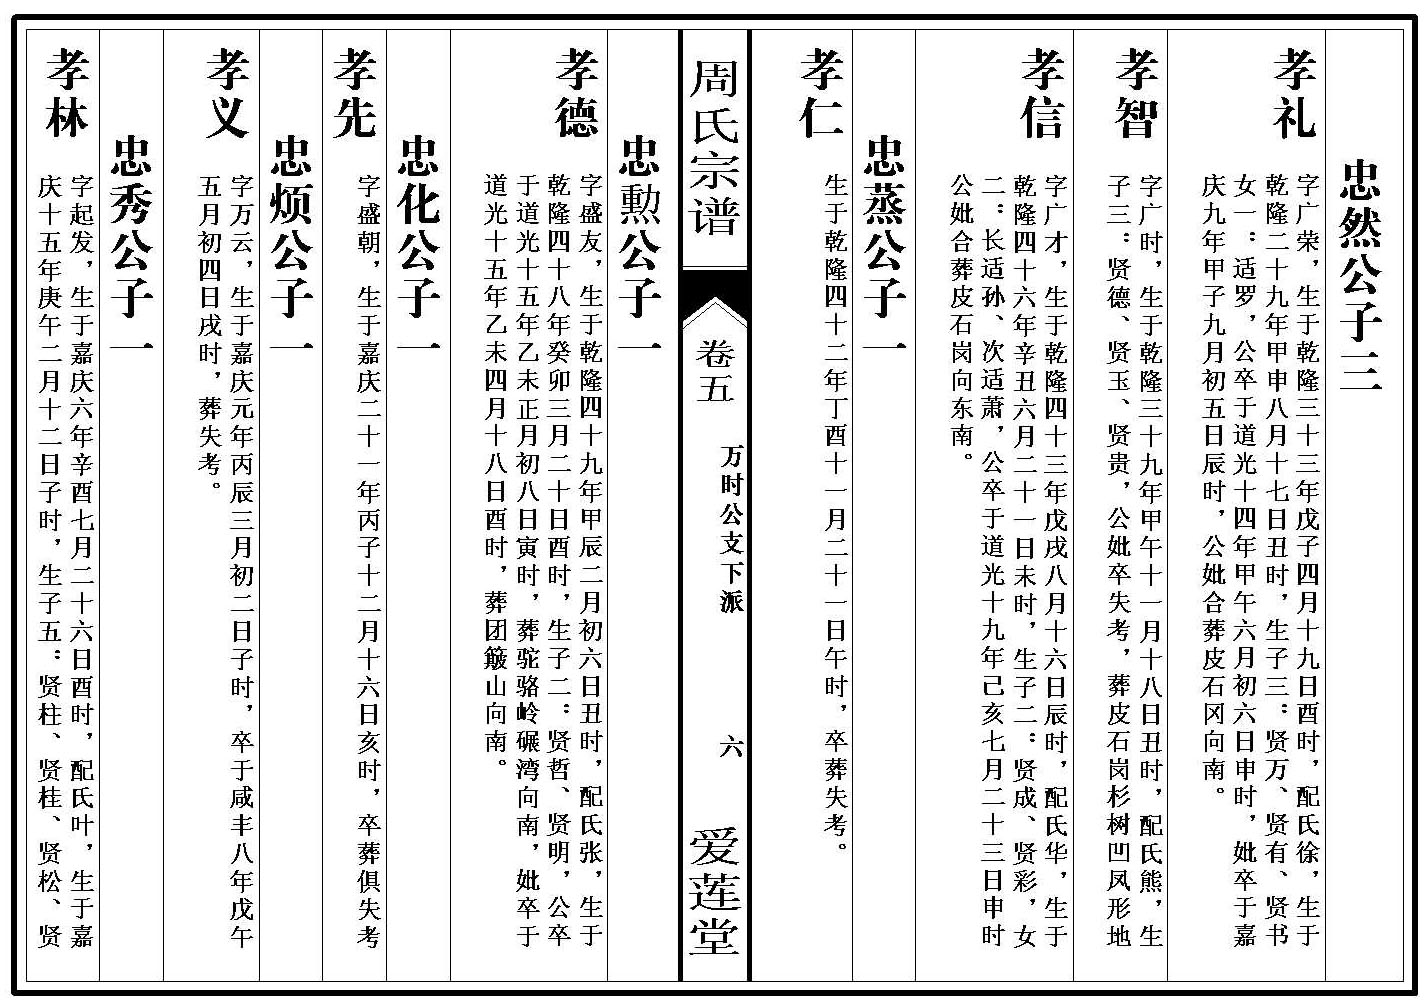 忠然公子三
孝礼
字广荣，生于乾隆三十三年戊子四月十九日酉时，配氏徐，生于
乾隆二十九年甲申八月十七日丑时，生子三：贤万、贤有、贤书
女一：适罗，公卒于道光十四年甲午六月初六日申时，妣卒于嘉
庆九年甲子九月初五日辰时，公妣合葬皮石冈向南。
孝智
字广时，生于乾隆三十九年甲午十一月十八日丑时，配氏熊，生
子三：贤德、贤玉、贤贵，公妣卒失考，葬皮石岗杉树凹凤形地
孝信
字广才，生于乾隆四十三年戊戌八月十六日辰时，配氏华，生于
乾隆四十六年辛丑六月二十一日未时，生子二：贤成、贤彩，女
二：长适孙、次适萧，公卒于道光十九年己亥七月二十三日申时
公妣合葬皮石岗向东南。
忠蒸公子一
孝仁
生于乾隆四十二年丁酉十一月二十一日午时，卒葬失考。
周氏宗谱
卷五
万时公支下派
六
爱莲堂
忠勲公子一
孝德
字盛友，生于乾隆四十九年甲辰二月初六日丑时，配氏张，生于
乾隆四十八年癸卯三月二十日酉时，生子二：贤哲、贤明，公卒
于道光十五年乙未正月初八日寅时，葬驼骆岭碾湾向南，妣卒于
道光十五年乙未四月十八日酉时，葬团簸山向南。
忠化公子一
孝先
字盛朝，生于嘉庆二十一年丙子十二月十六日亥时，卒葬俱失考
忠烦公子一
孝义
字万云，生于嘉庆元年丙辰三月初二日子时，卒于咸丰八年戊午
五月初四日戌时，葬失考。
忠秀公子一
孝林
字起发，生于嘉庆六年辛酉七月二十六日酉时，配氏叶，生于嘉
庆十五年庚午二月十二日子时，生子五：贤柱、贤桂、贤松、贤